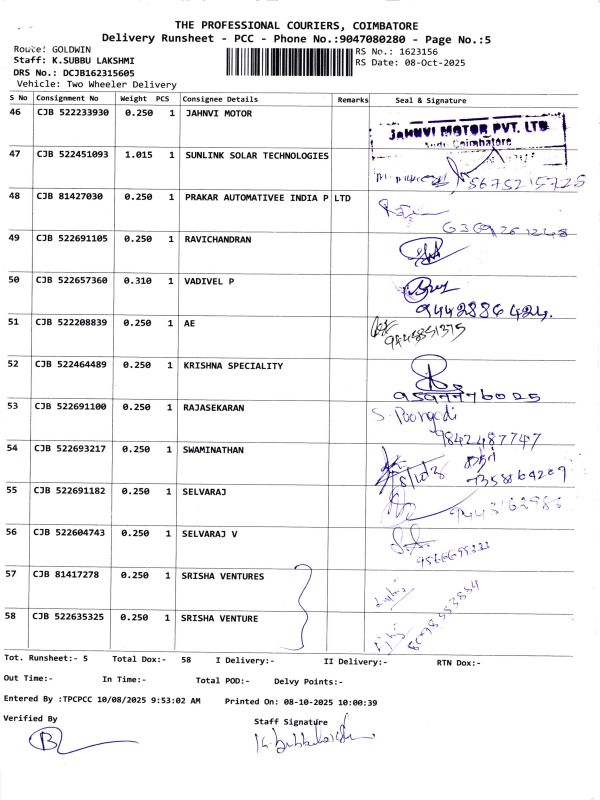 THE PROFESSIONAL COURIERS, COIMBATORE
Delivery Runsheet - PCC - Phone No.:9047080280 - Page No.:5
Route: GOLDWIN
Staff: K.SUBBU LAKSHMI
RS No.: 1623156
RS Date: 08-Oct-2025
DRS No.: DCJB162315605
Vehicle: Two Wheeler Delivery
S No Consignment No Weight PCS Consignee Details Remarks Seal & Signature
46 CJB 522233930 0.250 1 JAHNVI MOTOR
JAHNVI MOTOR PVT. LTD
Coimbatore
47 CJB 522451093 1.015 1 SUNLINK SOLAR TECHNOLOGIES
48 CJB 81427030 0.250 1 PRAKAR AUTOMATIVEE INDIA P LTD
49 CJB 522691105 0.250 1 RAVICHANDRAN
50 CJB 522657360 0.310 1 VADIVEL P
9442886424.
51 CJB 522208839 0.250 1 AE
52 CJB 522464489 0.250 1 KRISHNA SPECIALITY
53 CJB 522691100 0.250 1 RAJASEKARAN
S. Poongodi
9842487747
54 CJB 522693217 0.250 1 SWAMINATHAN
7358864209
55 CJB 522691182 0.250 1 SELVARAJ
56 CJB 522604743 0.250 1 SELVARAJ V
57 CJB 81417278 0.250 1 SRISHA VENTURES
58 CJB 522635325 0.250 1 SRISHA VENTURE
Tot. Runsheet:- 5 Total Dox:- 58 I Delivery:- II Delivery:- RTN Dox:-
Out Time:- In Time:- Total POD:- Delvy Points:-
Entered By :TPCPCC 10/08/2025 9:53:02 AM Printed On: 08-10-2025 10:00:39
Verified By Staff Signature